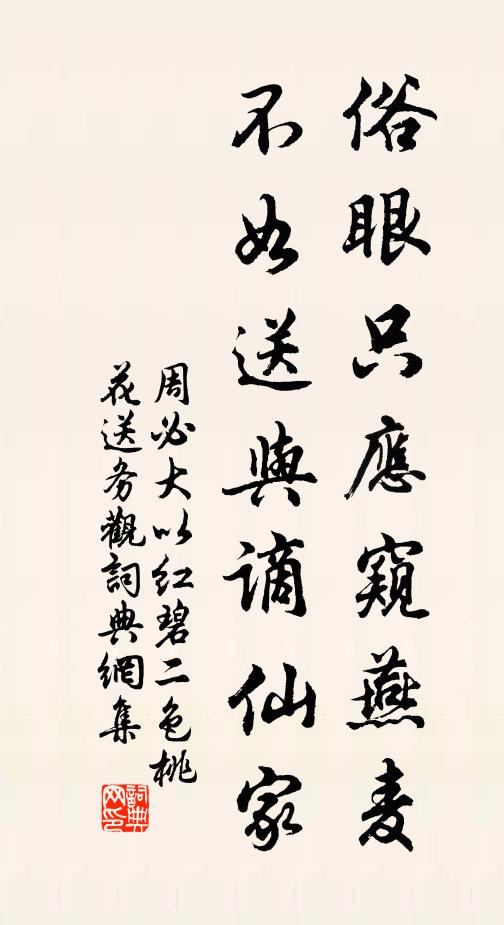 俗眼只應窺燕麦
不如送與謫仙家
周必大以红碧二色桃
花送务觀詞典網集
詞典网印